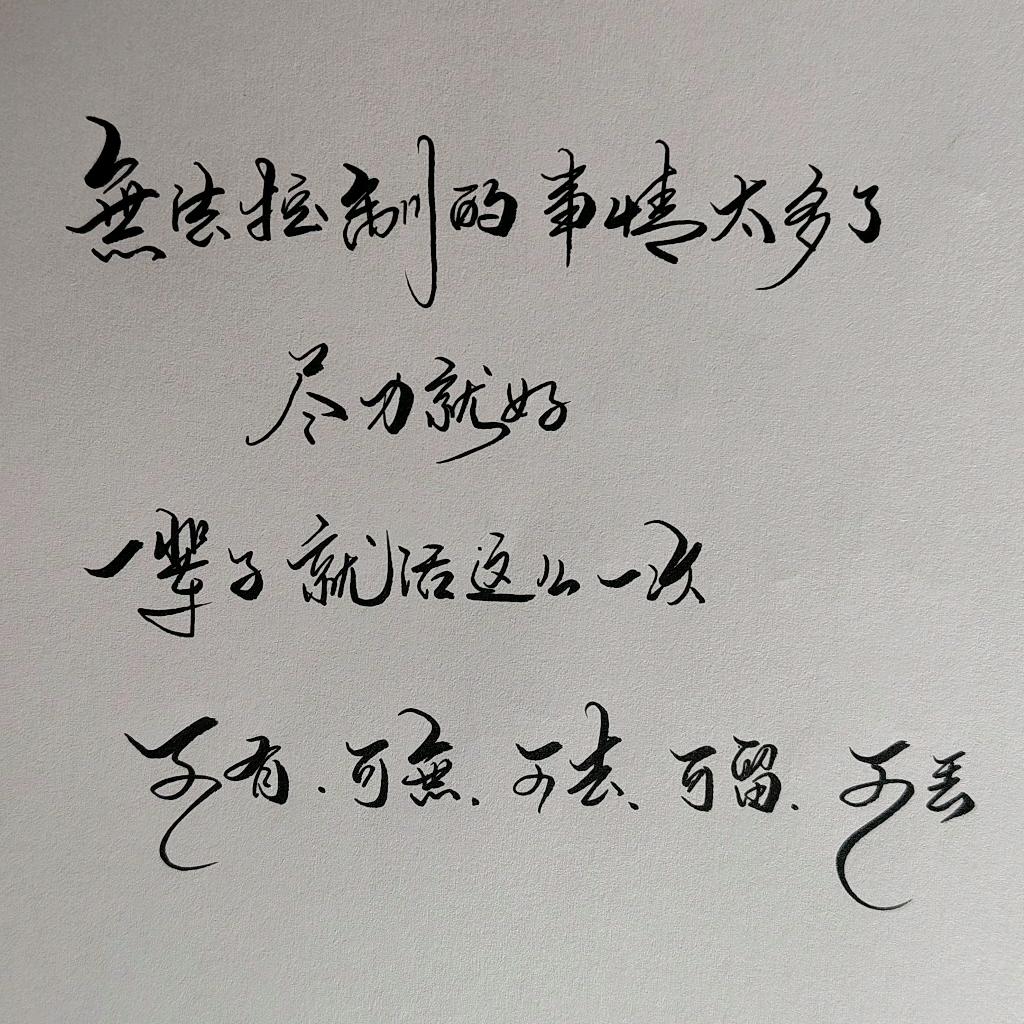 無法控制的事情太多了
尽力就好
一辈子就活这么一次
可有.可無、可去、可留.可丢